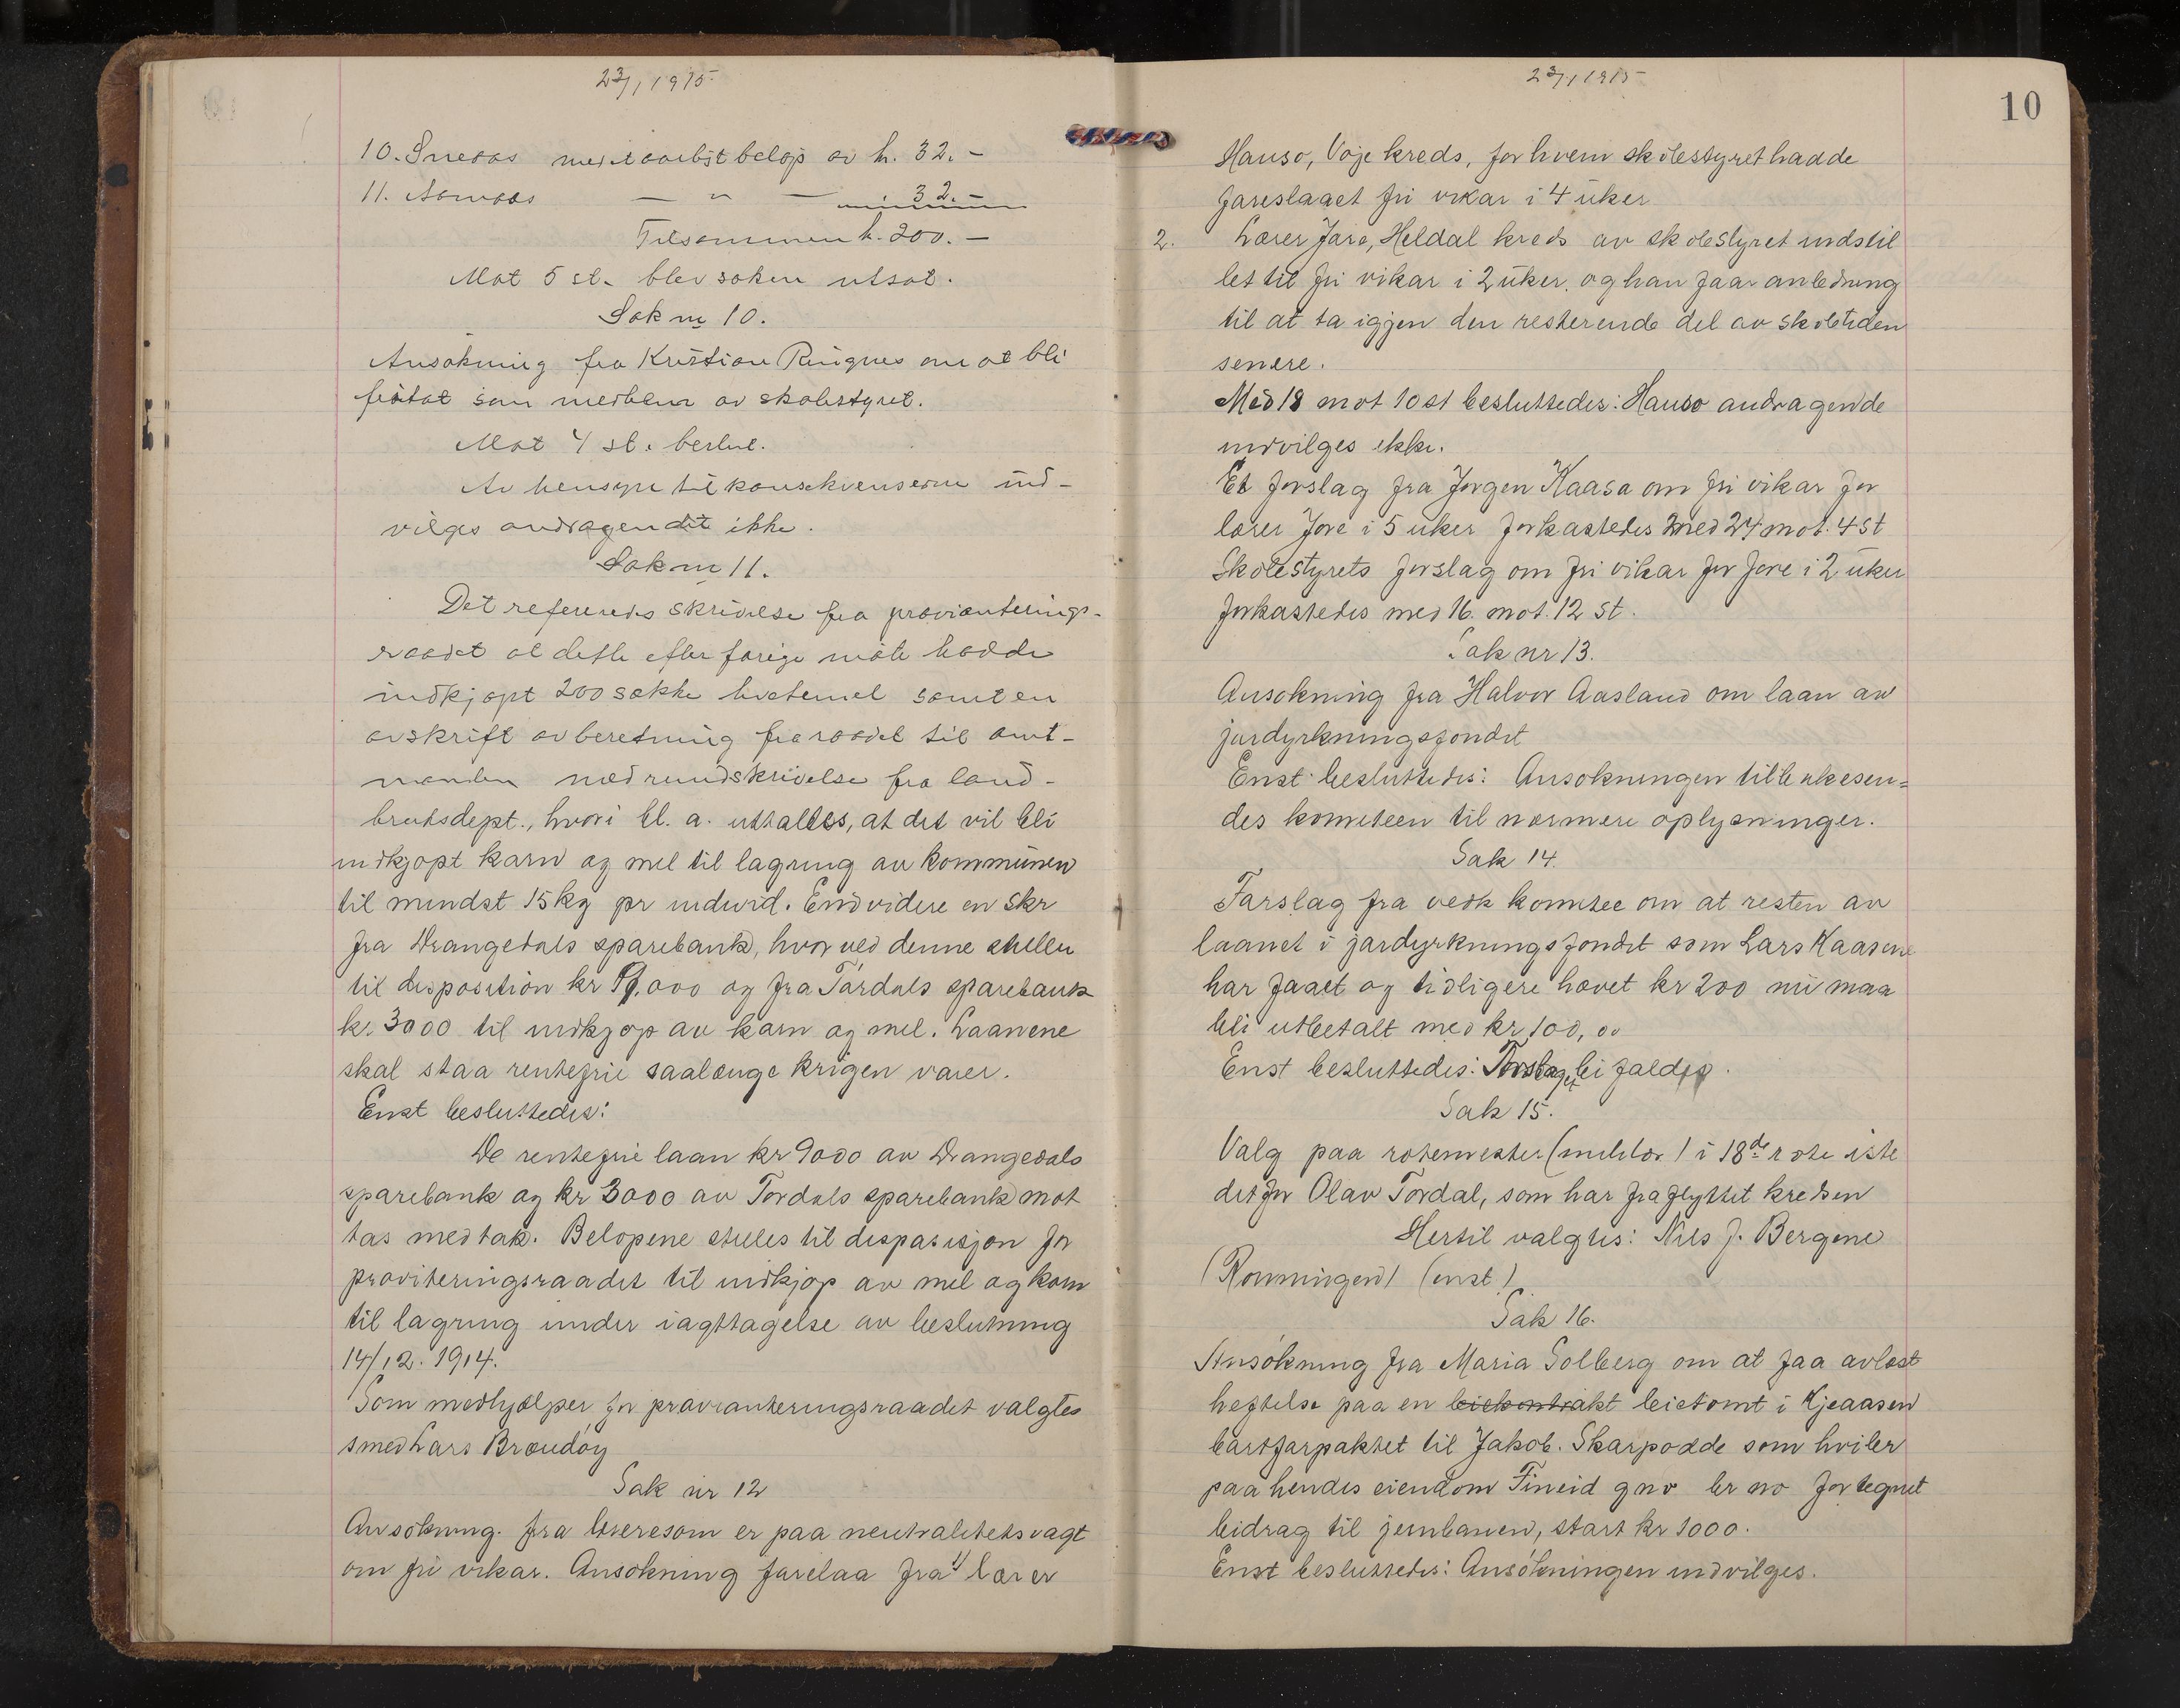 23/1 1915
10. Sneaas med et aarligt beløp av kr. 32.-
11. Aamaas — " — 32.-
Tilsammen kr. 200.-
Mot 5 st. blev saken utsat.
Sak nr 10.
Ansøkning fra Kristian Ringnes om at bli
fritat som medlem av skolestyret.
Mot 4 st. beslut.
Av hensyn til konsekvenserne ind-
vilges andragendet ikke.
Sak nr 11.
Det refereredes skrivelse fra provianterings-
raadet at dette efter forrige møte hadde
indkjøpt 200 sække hvetemel samt en
avskrift av beretning fra raadet til amt-
manden med rundskrivelse fra land-
bruksdept., hvori bl. a. uttaltes, at det vil bli
indkjøpt korn og mel til lagring av kommunen
til mindst 15 kg pr individ. Endvidere en skr
fra Drangedals sparebank, hvorved denne stiller
til disposition kr 9,000 og fra Tørdals sparebank
kr. 3000 til indkjøp av korn og mel. Laanene
skal staa rentefrie saalænge krigen varer.
Enst besluttedes:
De rentefrie laan kr 9000 av Drangedals
sparebank og kr 3000 av Tørdals sparebank mot
tas med tak. Beløpene stilles til disposisjon for
proviteringsraadet til indkjøp av mel og korn
til lagring under iagttagelse av beslutning
14/12. 1914.
Som medhjælper for provianteringsraadet valgtes
smed Lars Brændøy
Sak nr 12
Ansøkning fra lærere som er paa neutralitetsvagt
om fri vikar. Ansøkning forelaa fra 1) lærer
23/1 1915
10
Hauso, Voje kreds, for hvem skolestyret hadde
foreslaaet fri vikar i 4 uker
2. Lærer Jore, Heldal kreds av skolestyret indstil
let til fri vikar i 2 uker. og han faar anledning
til at ta igjen den resterende del av skoletiden
senere.
Med 18 mot 10 st besluttedes: Hauso andragende
indvilges ikke.
Et forslag fra Jørgen Kaasa om fri vikar for
lærer Jore i 5 uker forkastedes med 24 mot 4 st
Skolestyrets forslag om fri vikar for Jore i 2 uker
forkastedes med 16. mot. 12 st.
Sak nr 13.
Ansøkning fra Halvor Aasland om laan av
jordyrkningsfondet
Enst besluttedes: Ansøkningen tilbakesen=
des komiteen til nærmere oplysninger.
Sak 14.
Forslag fra vedk komitee om at resten av
laanet i jordyrkningsfondet som Lars Kaasene
har faaet og tidligere hævet kr 200 nu maa
bli utbetalt med kr 100,00
Enst besluttedes: Forslaget bifaldes.
Sak 15.
Valg paa rotemester (militær) i 18de rote iste
det for Olav Tordal, som har fraflyttet kredsen
Hertil valgtes: Nils J. Bergene
(Rønningen) (enst)
Sak 16.
Ansøkning fra Maria Solberg om at faa avløst
heftelse paa en leiekontrakt leietomt i Kjeaasen
bortforpaktet til Jakob. Skarpodde som hviler
paa hendes eiendom Fineid gnr br no for tegnet
bidrag til jernbanen, stort kr 1000.
Enst besluttedes: Ansøkningen indvilges.